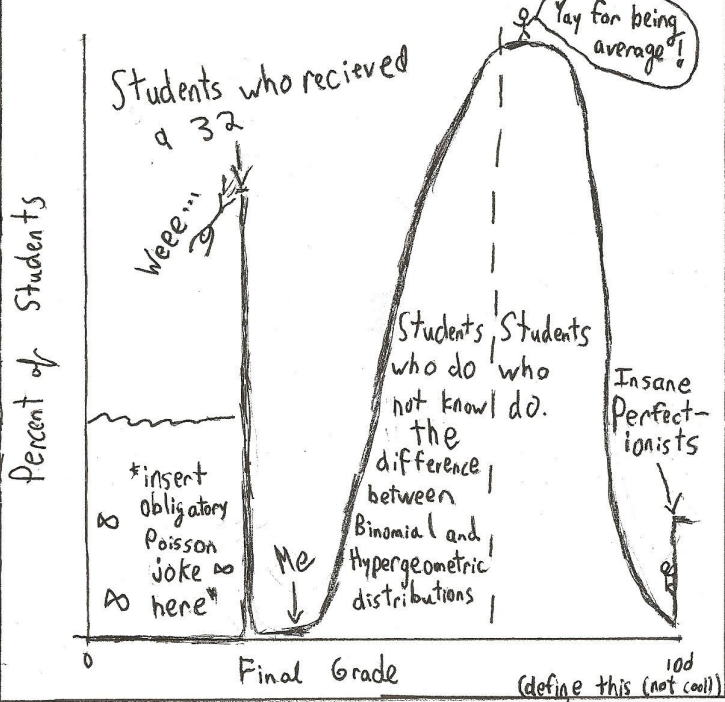 Yay for being
average!
Students who recieved
a 32
Weee...
Percent of Students
Students
who do
not know
the
difference
between
Binomial and
Hypergeometric
distributions
Students
who
do.
Insane
Perfect-
ionists
*insert
obligatory
Poisson
joke
here*
Me
0
Final Grade
100
(define this (not cool))